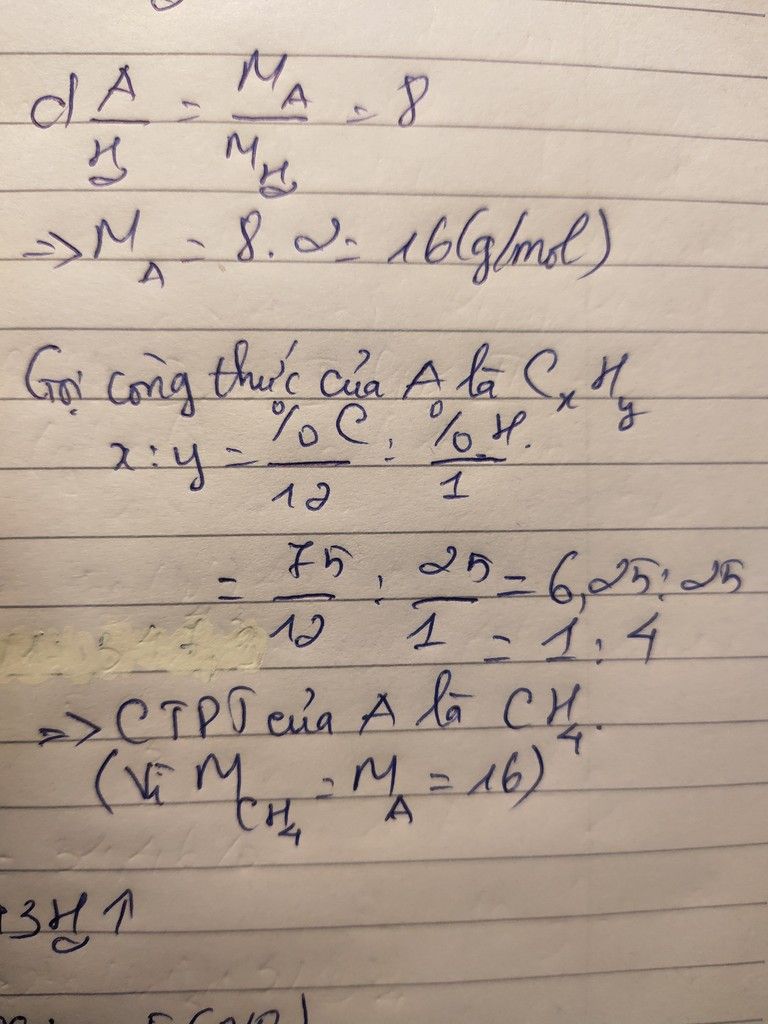 d A/H₂ = M_A/M_H₂ = 8
=> M_A = 8.2 = 16(g/mol)
Gọi công thức của A là CₓHᵧ
x : y = %C/12 : %H/1
= 75/12 : 25/1 = 6,25 : 25
= 1 : 4
=> CTPT của A là CH₄.
(Vì M_CH₄ = M_A = 16)
3H₂↑